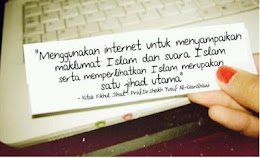 "Menggunakan internet untuk menyampaikan
maklumat Islam dan suara Islam
serta memperlihatkan Islam merupakan
satu jihad utama"
- Kitab Fikhul Jihad, Prof.Dr.Sheikh Yusuf Al-Qardhawi